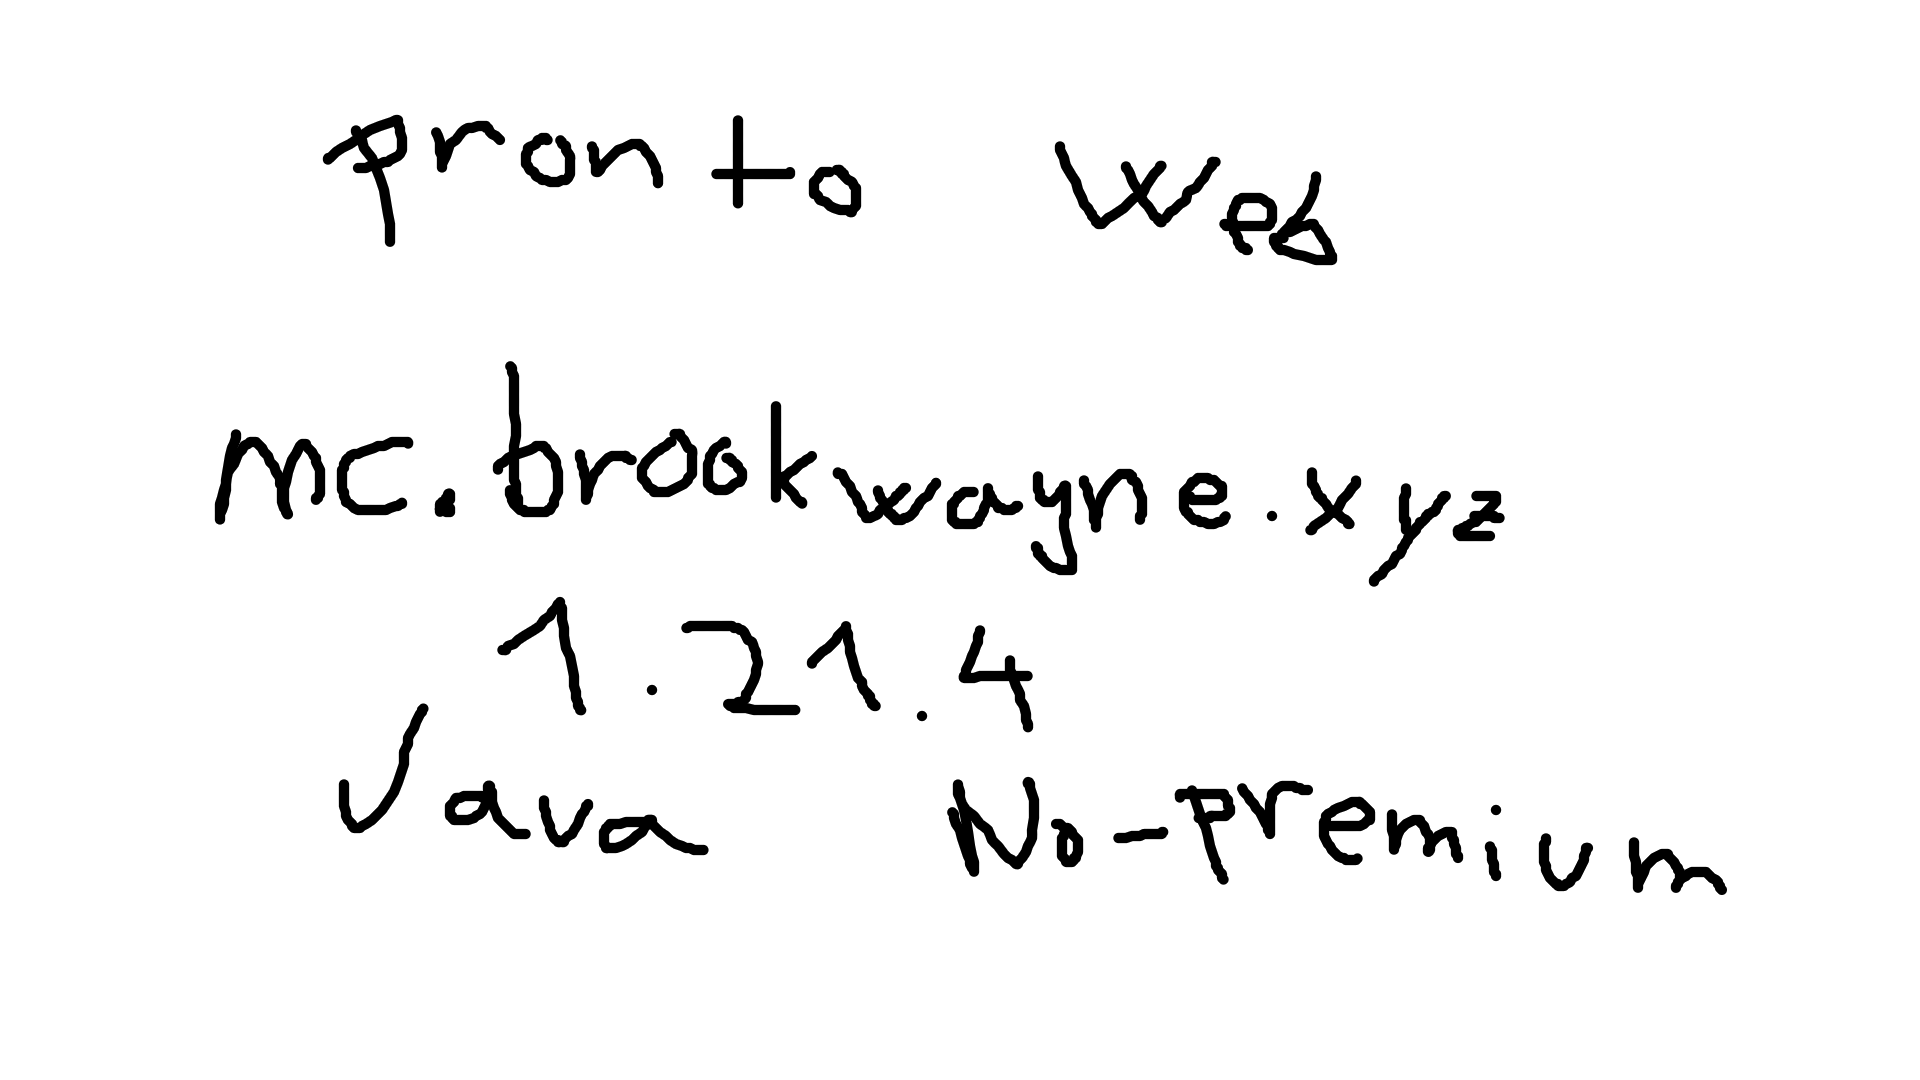 pronto Web
mc.brookwayne.xyz
1.21.4
Java No-premium